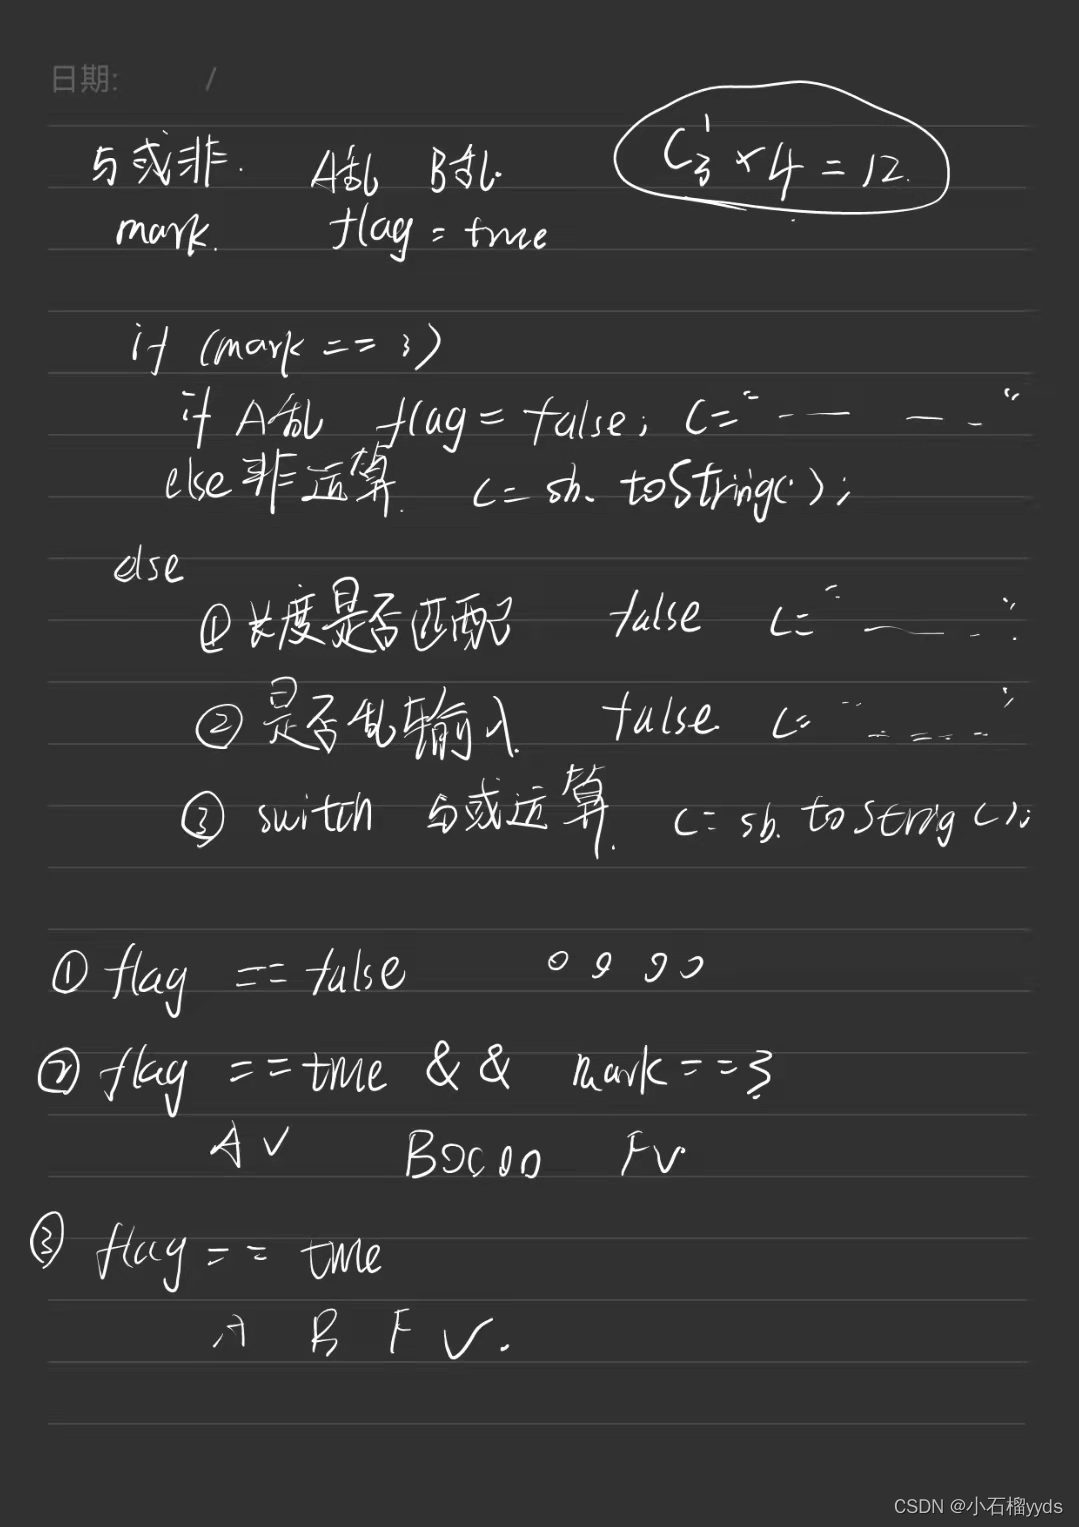 日期: /
与或非. A乱 B乱. C₃¹ × 4 = 12.
mark. flag = true
if (mark == 3)
if A乱 flag = false; C=" - — — - "
else 非运算. C= sb. toString( );
else
① 长度是否匹配 false C=" — - "
② 是否乱输入. false. C= " - = - - "
③ switch 与或运算. C= sb. toString ( );
① flag == false 0 0 0 0
② flag == true && mark == 3
A √ B 0000 F √.
③ flag == true
A B F √.
CSDN @小石榴yyds